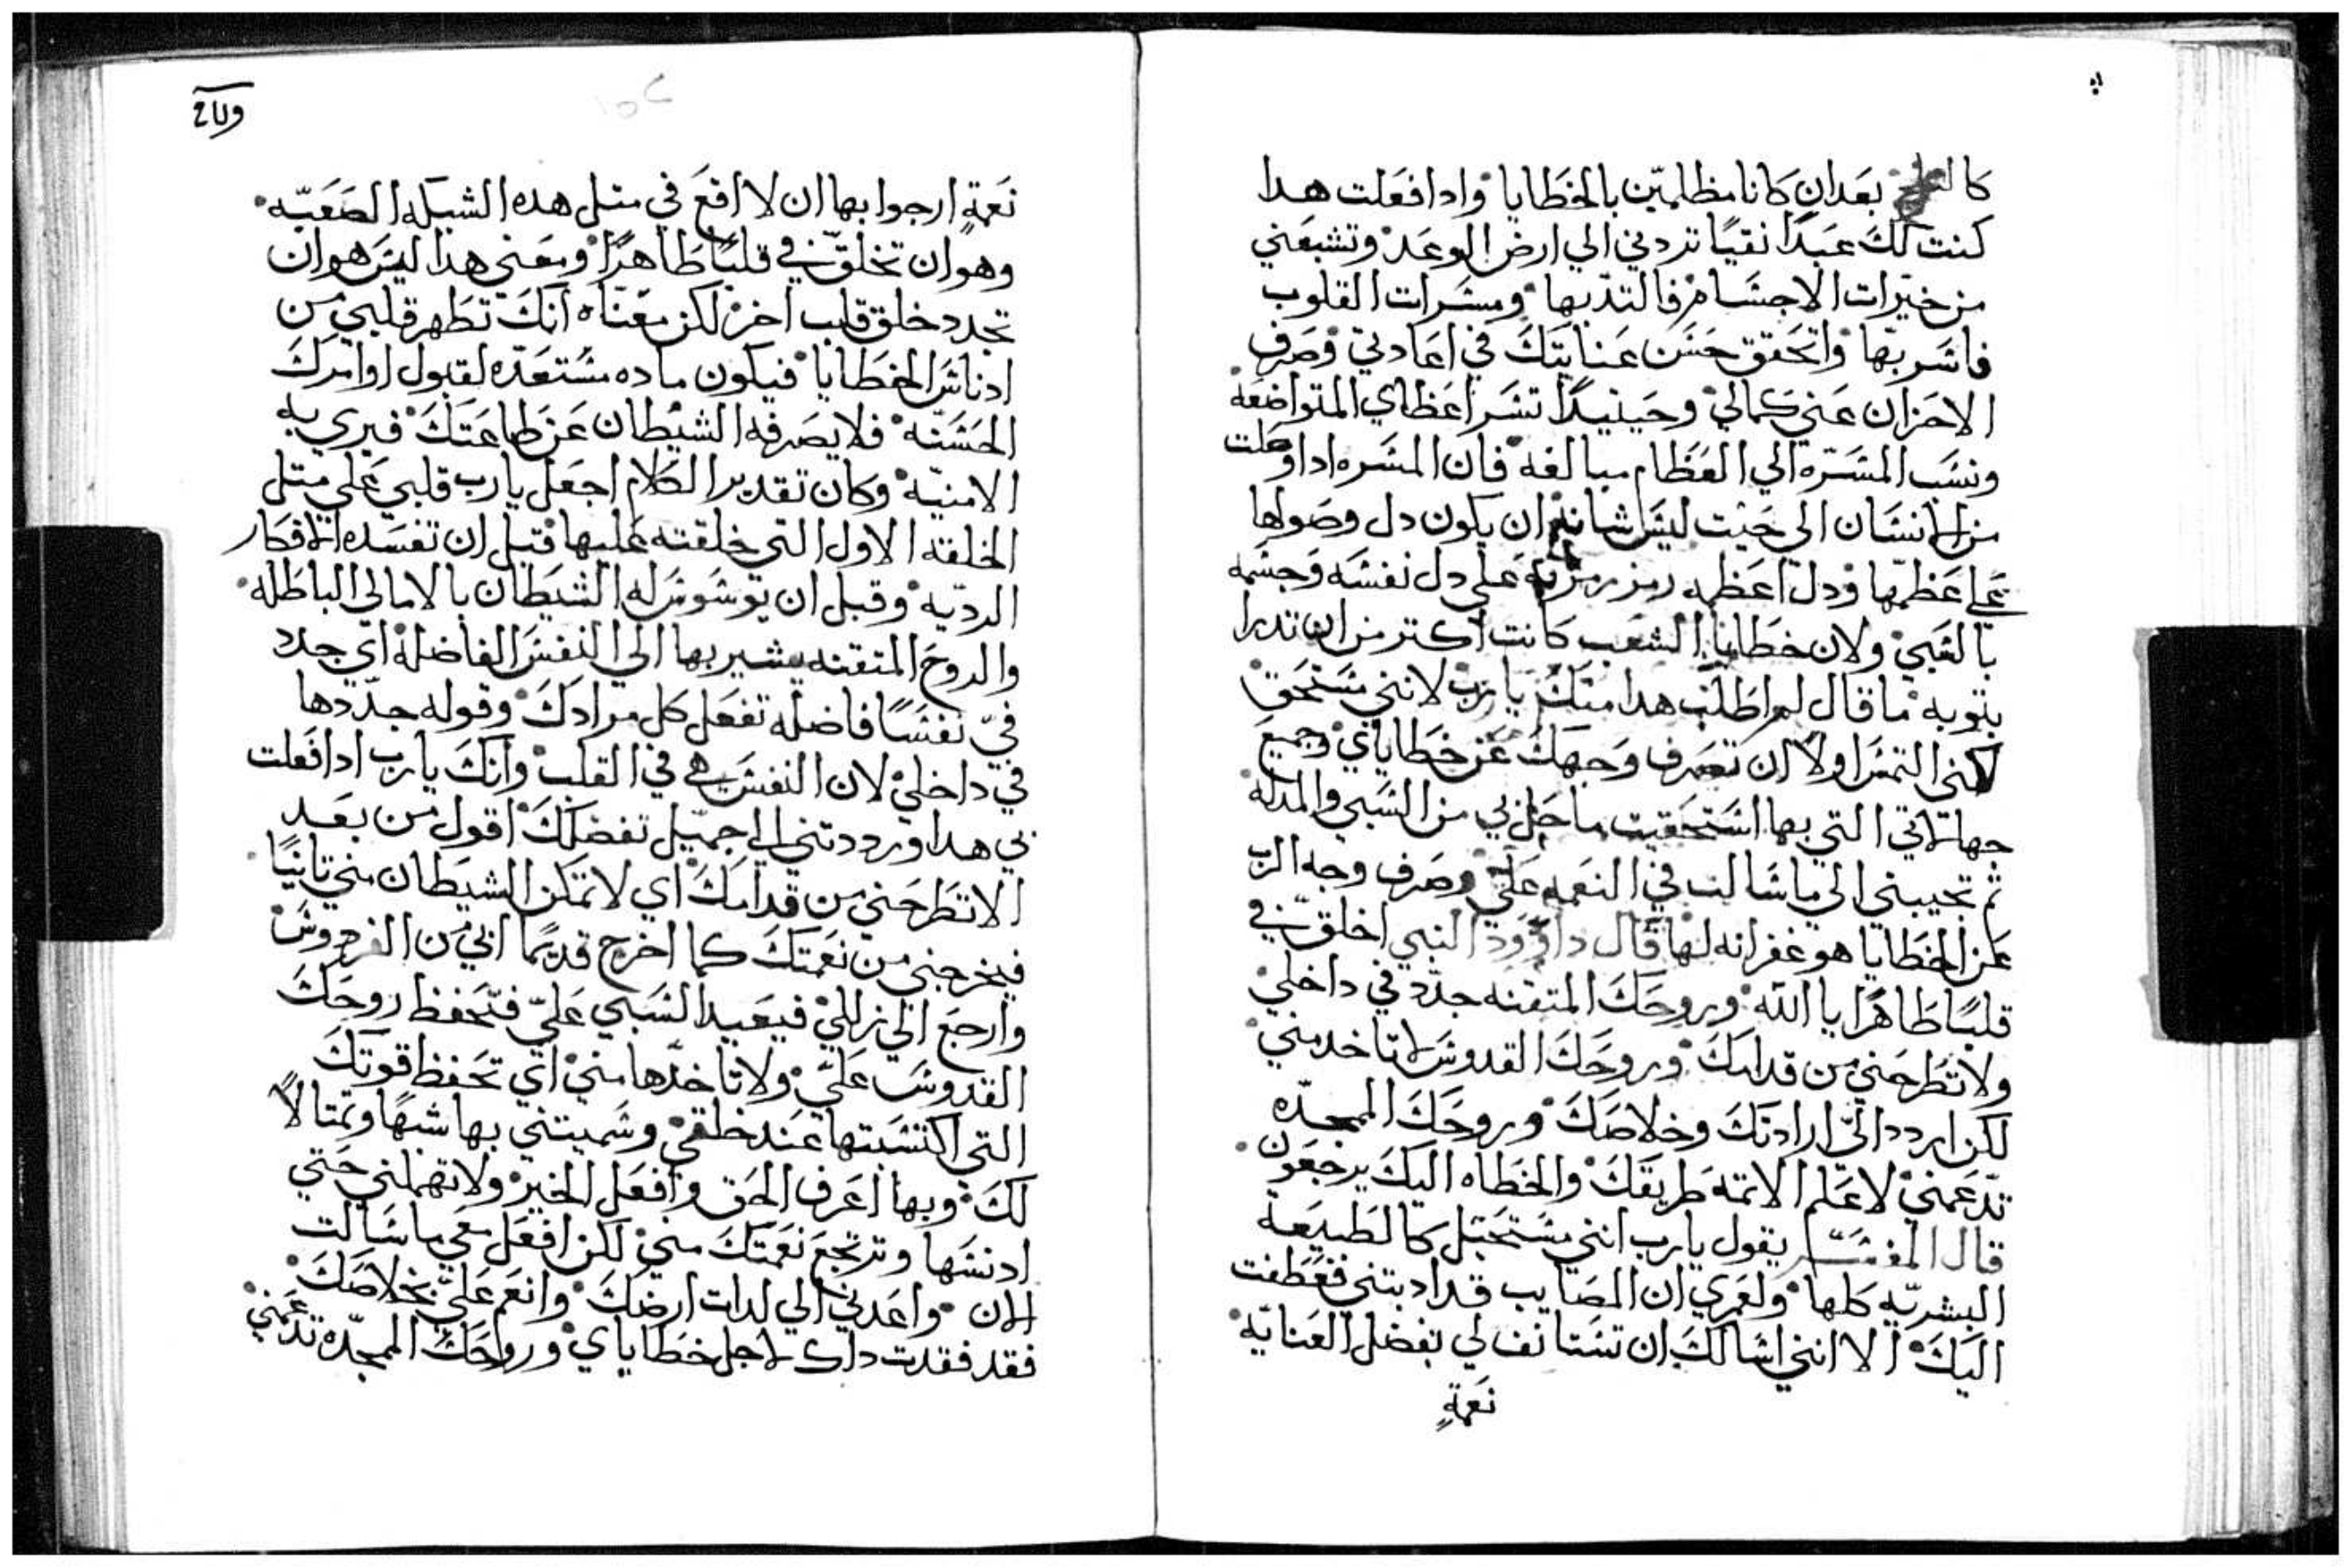 كالثلج بعد ان كانا مظلمين بالخطايا وادا فعلت هدا
كنت لك عبدًا نقيًا تردني الي ارض الوعد وتشبعني
من خيرات الاجسام فالتدبها ومسرات القلوب
فاسر بها واتحقق حسن عنايتك في اعادتي وصرف
الاحزان عني كمالي وحينيدًا تسر اعظاي المتواضعه
ونسب المسره الي العظام مبالغه فان المسره ادا وصلت
من الانسان الي حيت ليس شانه ان يكون دل وصولها
علي عظمها ودل اعظمه رمز رمز به علي دل نفسه وجسمه
بالسبي ولان خطايا الشعب كانت اكتر من ان تدرا
بتوبه ما قال لم اطلب هدا منك يا رب لانني مستحق
لكني التمس اولا ان تصرف وجهك عن خطاياي وجميع
جهالاتي التي بها استحقيت ما حل بي من السبي والمدله
ثم تجيبني الي ما سالت في النعمه علي وصرف وجه الرب
عن الخطايا هو غفرانه لها قال داوود النبي اخلق في
قلبًا طاهرًا يا الله وروحك المتقنه جدد في داخلي
ولا تطرحني من قدامك وروحك القدوس لا تاخد مني
لكن اردد الي ارادتك وخلاصك وروحك الممجده
تدعمني لاعلم الاتمه طريقك والخطاه اليك يرجعون
قال المفسر يقول يا رب انني مستحتل كالطبيعه
البشريه كلها ولعمري ان المصايب قد ادبتني فعطفت
اليك الا انني اسالك ان تستانف لي بفضل العنايه
نعمةٍ
نعمةٍ ارجوا بها ان لا اقع في متل هده الشبكه الصعبه
وهو ان تخلق في قلبًا طاهرًا ومعني هدا ليس هو ان
تجدد خلق قلب اخر لكن معناه انك تطهر قلبي من
ادناس الخطايا فيكون ماده مستعده لقبول اوامرك
الحسنه فلا يصرفه الشيطان عن طاعتك فيري به
الامنيه وكان تقدير الكلام اجعل يا رب قلبي علي متل
الخلقه الاول التي خلقته عليها قبل ان تفسده الافكار
الرديه وقبل ان يوسوس له الشيطان بالامالي الباطله
والروح المتقنه يشير بها الي النفس الفاضله اي جدد
في نفسًا فاضله تفعل كل مرادك وقوله جددها
في داخلي لان النفس هي في القلب وانك يا رب ادا فعلت
بي هدا ورددتني الي جميل تفضلك اقول من بعد
الا تطرحني من قدامك اي لا تمكن الشيطان مني تانيًا
فيخرجني من نعمتك كما اخرج قديمًا ابي من الفردوس
وارجع الي زللي فيعيد السبي علي فتحفظ روحك
القدوس علي ولا تاخدها مني اي تحفظ قوتك
التي اكتسبتها عند خلقي وسميتني بها شبهًا وتمتالًا
لك وبها اعرف الحق وافعل الخير ولا تهملني حتي
ادنسها وترتجع نعمتك مني لكن افعل معي ما سالت
الان واعدني الي لدات ارضك وانعم علي بخلاصك
فقد فقدت داك لاجل خطاياي وروحك الممجده تدعمني